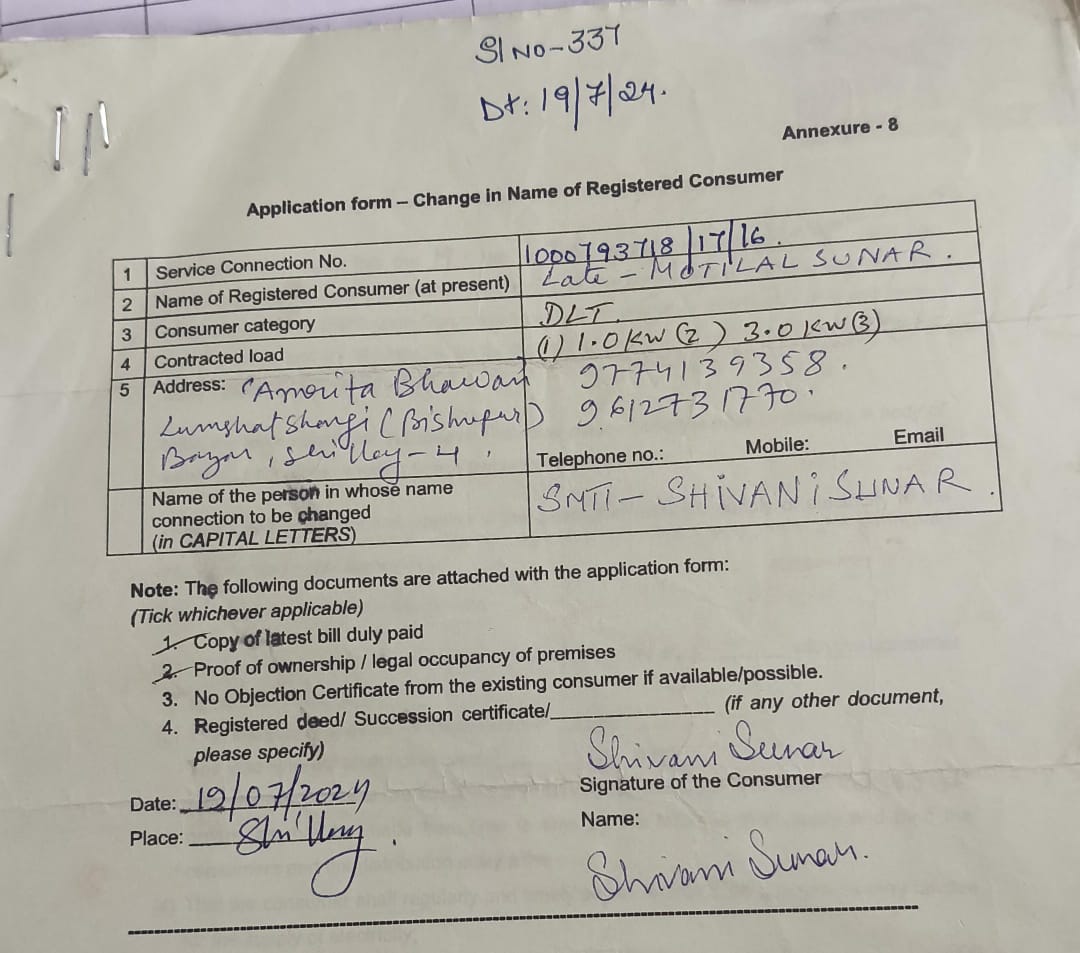 Sl No-337
Dt: 19/7/24.
Annexure - 8
Application form – Change in Name of Registered Consumer
1 Service Connection No. 1000793718/17/16.
2 Name of Registered Consumer (at present) Late - MOTILAL SUNAR.
3 Consumer category DLT.
4 Contracted load (1) 1.0 KW (2) 3.0 KW (3)
5 Address: "Amrita Bhawan 9774139358.
Lumshatshongi (Bishnupur) 9612731770.
Bazar, Shillong-4,
Telephone no.: Mobile: Email
Name of the person in whose name
connection to be changed
(in CAPITAL LETTERS) SMTI - SHIVANI SUNAR.
Note: The following documents are attached with the application form:
(Tick whichever applicable)
1. Copy of latest bill duly paid
2. Proof of ownership / legal occupancy of premises
3. No Objection Certificate from the existing consumer if available/possible.
4. Registered deed/ Succession certificate/ (if any other document,
please specify)
Shivani Sunar
Signature of the Consumer
Date: 19/07/2024
Place: Shillong.
Name:
Shivani Sunar.